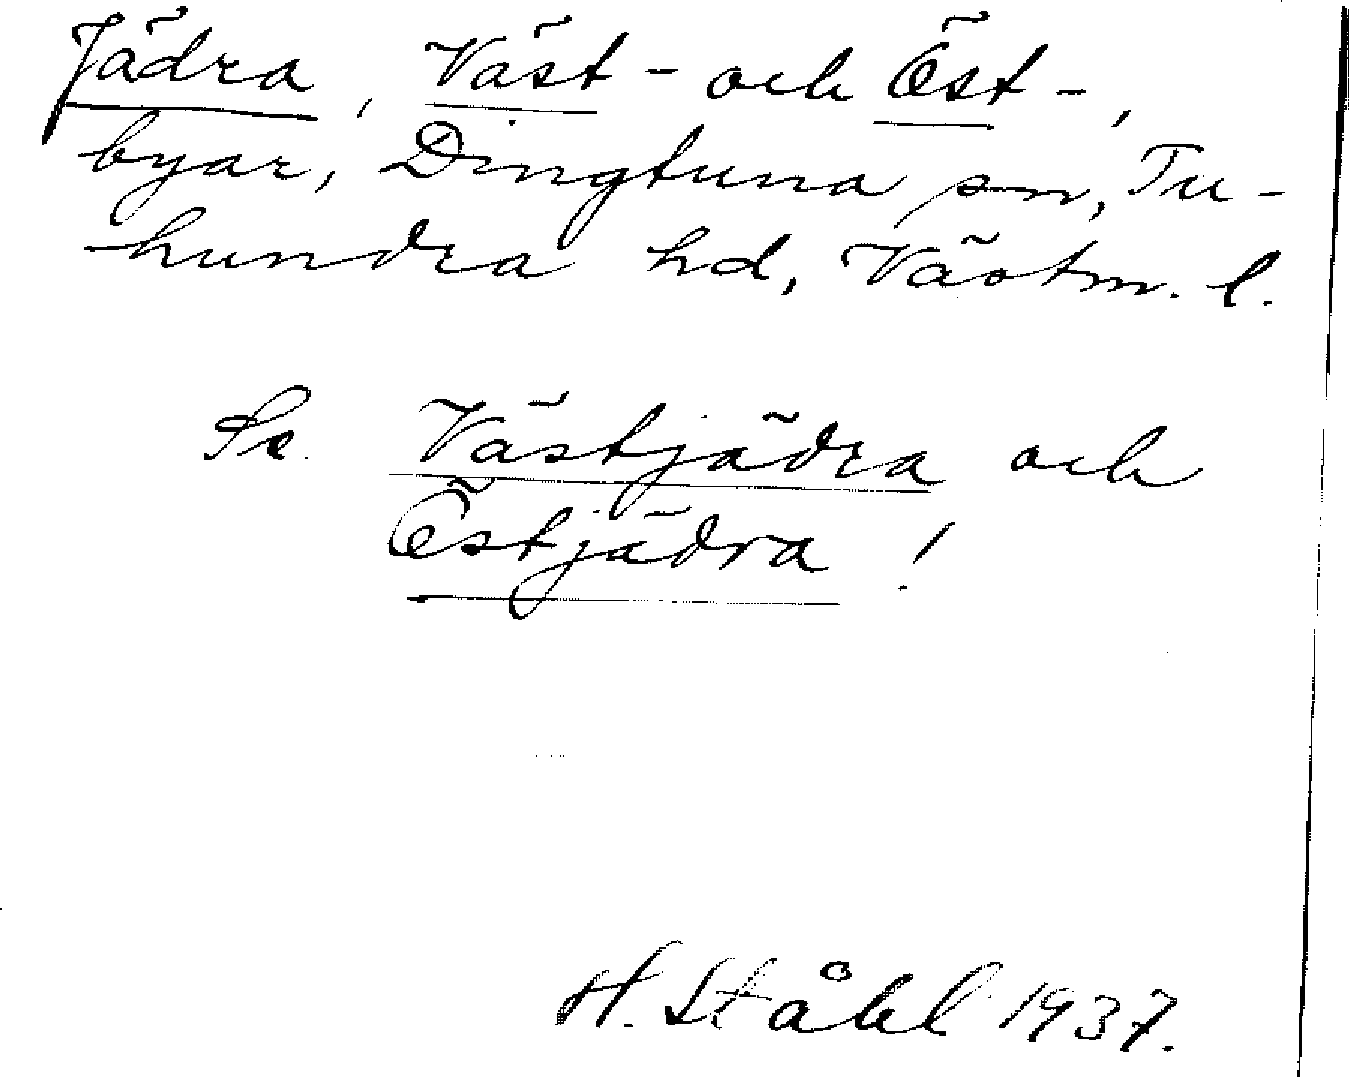 Jädra, Väst- och Öst-,
byar, Dingtuna sn, Tu-
hundra hd, Västm. l.
Se Västjädra och
Östjädra!
H. Ståhl 1937.